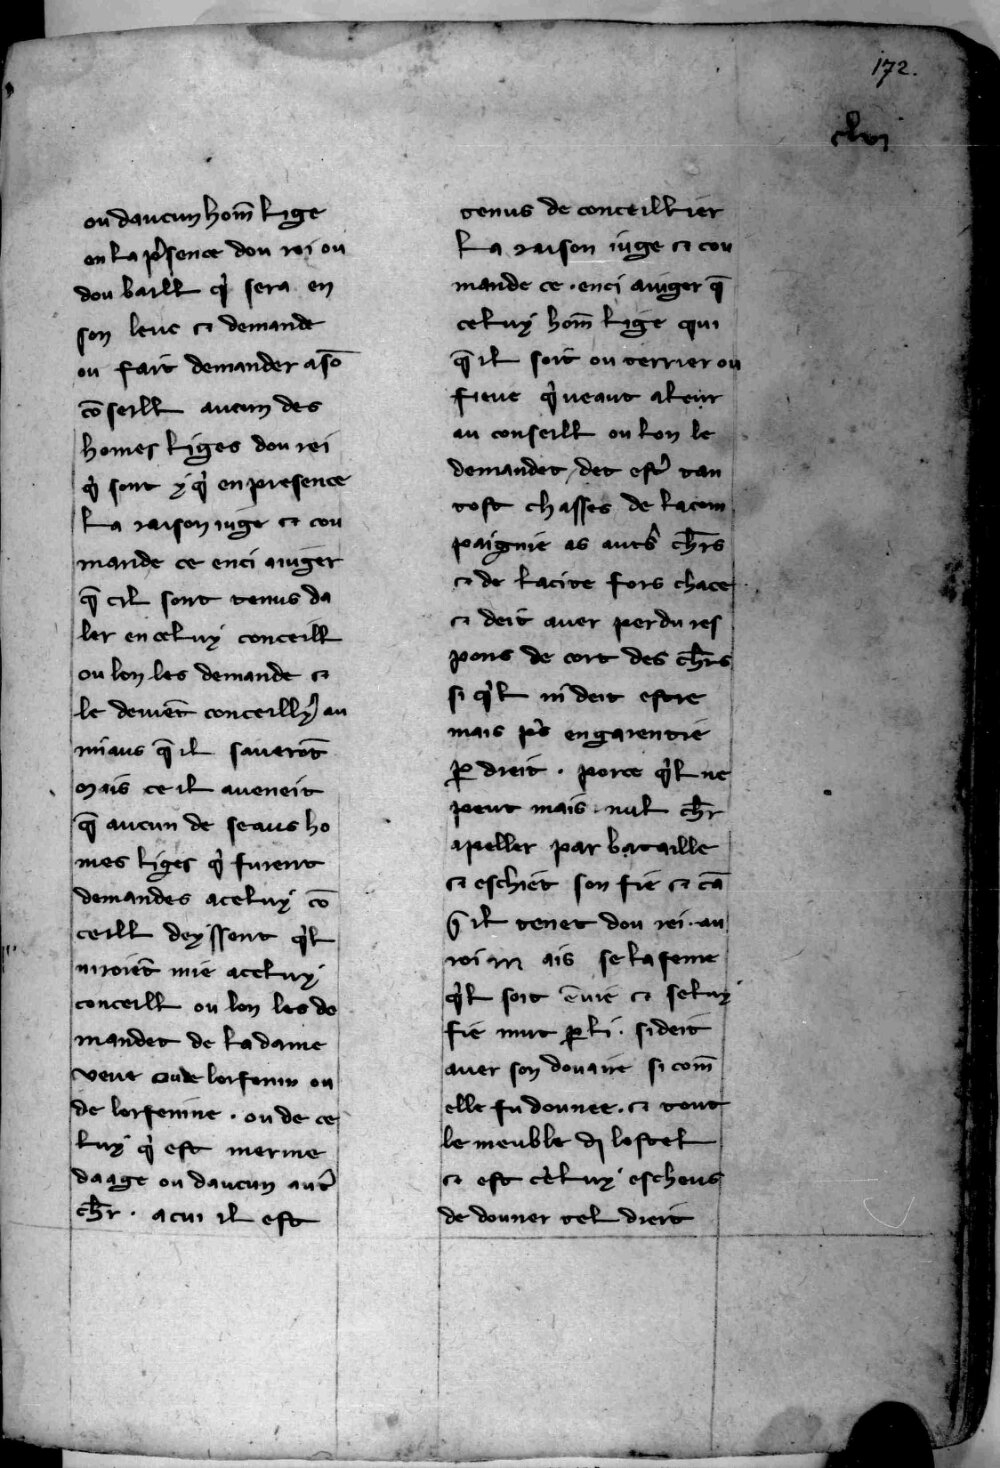 172.
clvi
ou daucun hom̄ lige
en la p̾sence dou roi ou
dou baill q̾ sera en
son leuc ⁊ demande
ou fait demander a sō
cōseill aucun des
homes liges dou rei
q̾ sont yq̾ en presence
la raison iuge ⁊ cou
mande ce enci aiuger
q̄ cil sont tenus da
ler en celuy conceill
ou lon les demande ⁊
le deiuēt conceillỹ au
miaus q̄ il sauerōt
Mais ce il aueneit
q̄ aucun de seaus ho
mes liges q̾ furent
demandes a celuy cō
ceill deyssent q̾l
niroiēt mie a celuy
conceill ou lon les de
mandet de la dame
veue ou de lorfenin ou
de lorfenine . ou de ce
luy q̾ est merme
daage ou daucun aut̾
ch̄r . a cui il est
tenus de conceillier
la raison iuge ⁊ cou
mande ce . enci aiuger q̄
celuy hom̄ lige qui
q̄ il soit ou terrier ou
fieue q̾ veaut aleir
au conseill ou lon le
demandet , det est̾ tan
tost chasses de la com
paignie as autˢ ch̄rs
⁊ de la cite fors chace
⁊ deit auer perdu res
pons de cort des ch̄rs
si q̾l ni deit estre
mais p̾s en garentie
ꝑ dreit . por ce q̾l ne
peut mais nul ch̄r
apeller par bataille
⁊ eschiet son fie ⁊ cā
q̄ il tenet dou rei . au
roi Mais se la feme
q̾l soit ē vie ⁊ seluy
fie mut ꝑ li . si deit
auer son douaire si com̄
elle fu dounee . ⁊ tout
le meuble d lostel
⁊ est celuy escheus
de douner tel dreit